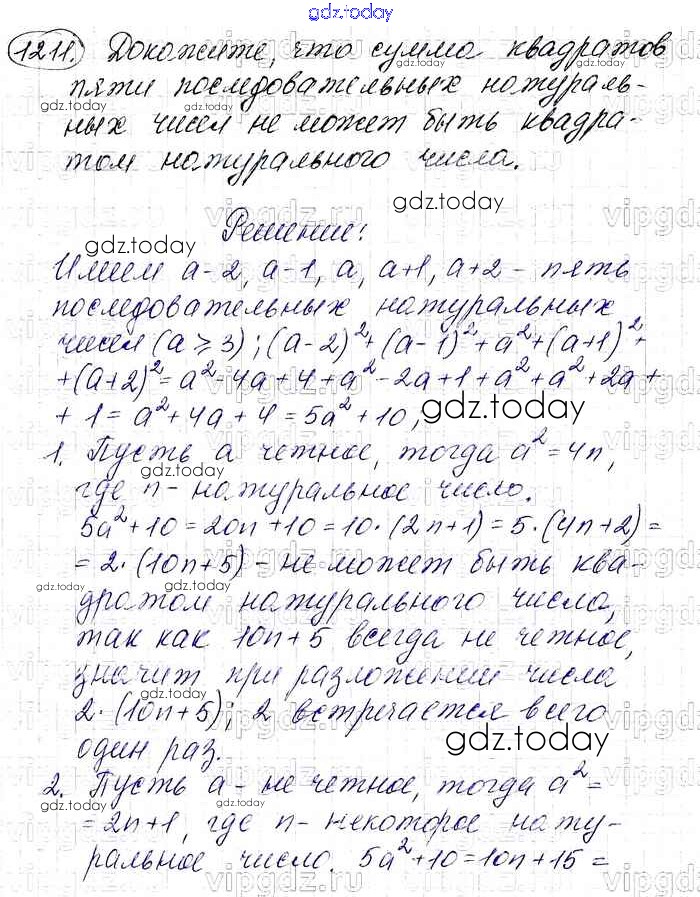 gdz.today
1211. Докажите, что сумма квадратов
пяти последовательных натураль-
ных чисел не может быть квадра-
том натурального числа.
gdz.today
Решение:
gdz.today
Имеем a-2, a-1, a, a+1, a+2 - пять
последовательных натуральных
чисел (a ≥ 3); (a-2)²+(a-1)²+a²+(a+1)²+
+(a+2)²=a²-4a+4+a²-2a+1+a²+a²+2a+
+1=a²+4a+4=5a²+10,
gdz.today
1. Пусть a четное, тогда a²=4n,
gdz.today
где n- натуральное число.
5a²+10=20n+10=10·(2n+1)=5·(4n+2)=
=2·(10n+5)-не может быть ква-
gdz.today
gdz.today
дратом натурального числа,
так как 10n+5 всегда не четное,
значит при разложении числа
gdz.today
2·(10n+5); 2 встречается всего
один раз.
gdz.today
2. Пусть a- не четное, тогда a²=
gdz.today
gdz.today
=2n+1, где n-некоторое нату-
ральное число. 5a²+10=10n+15=
vipgdz.ru
gdz.today